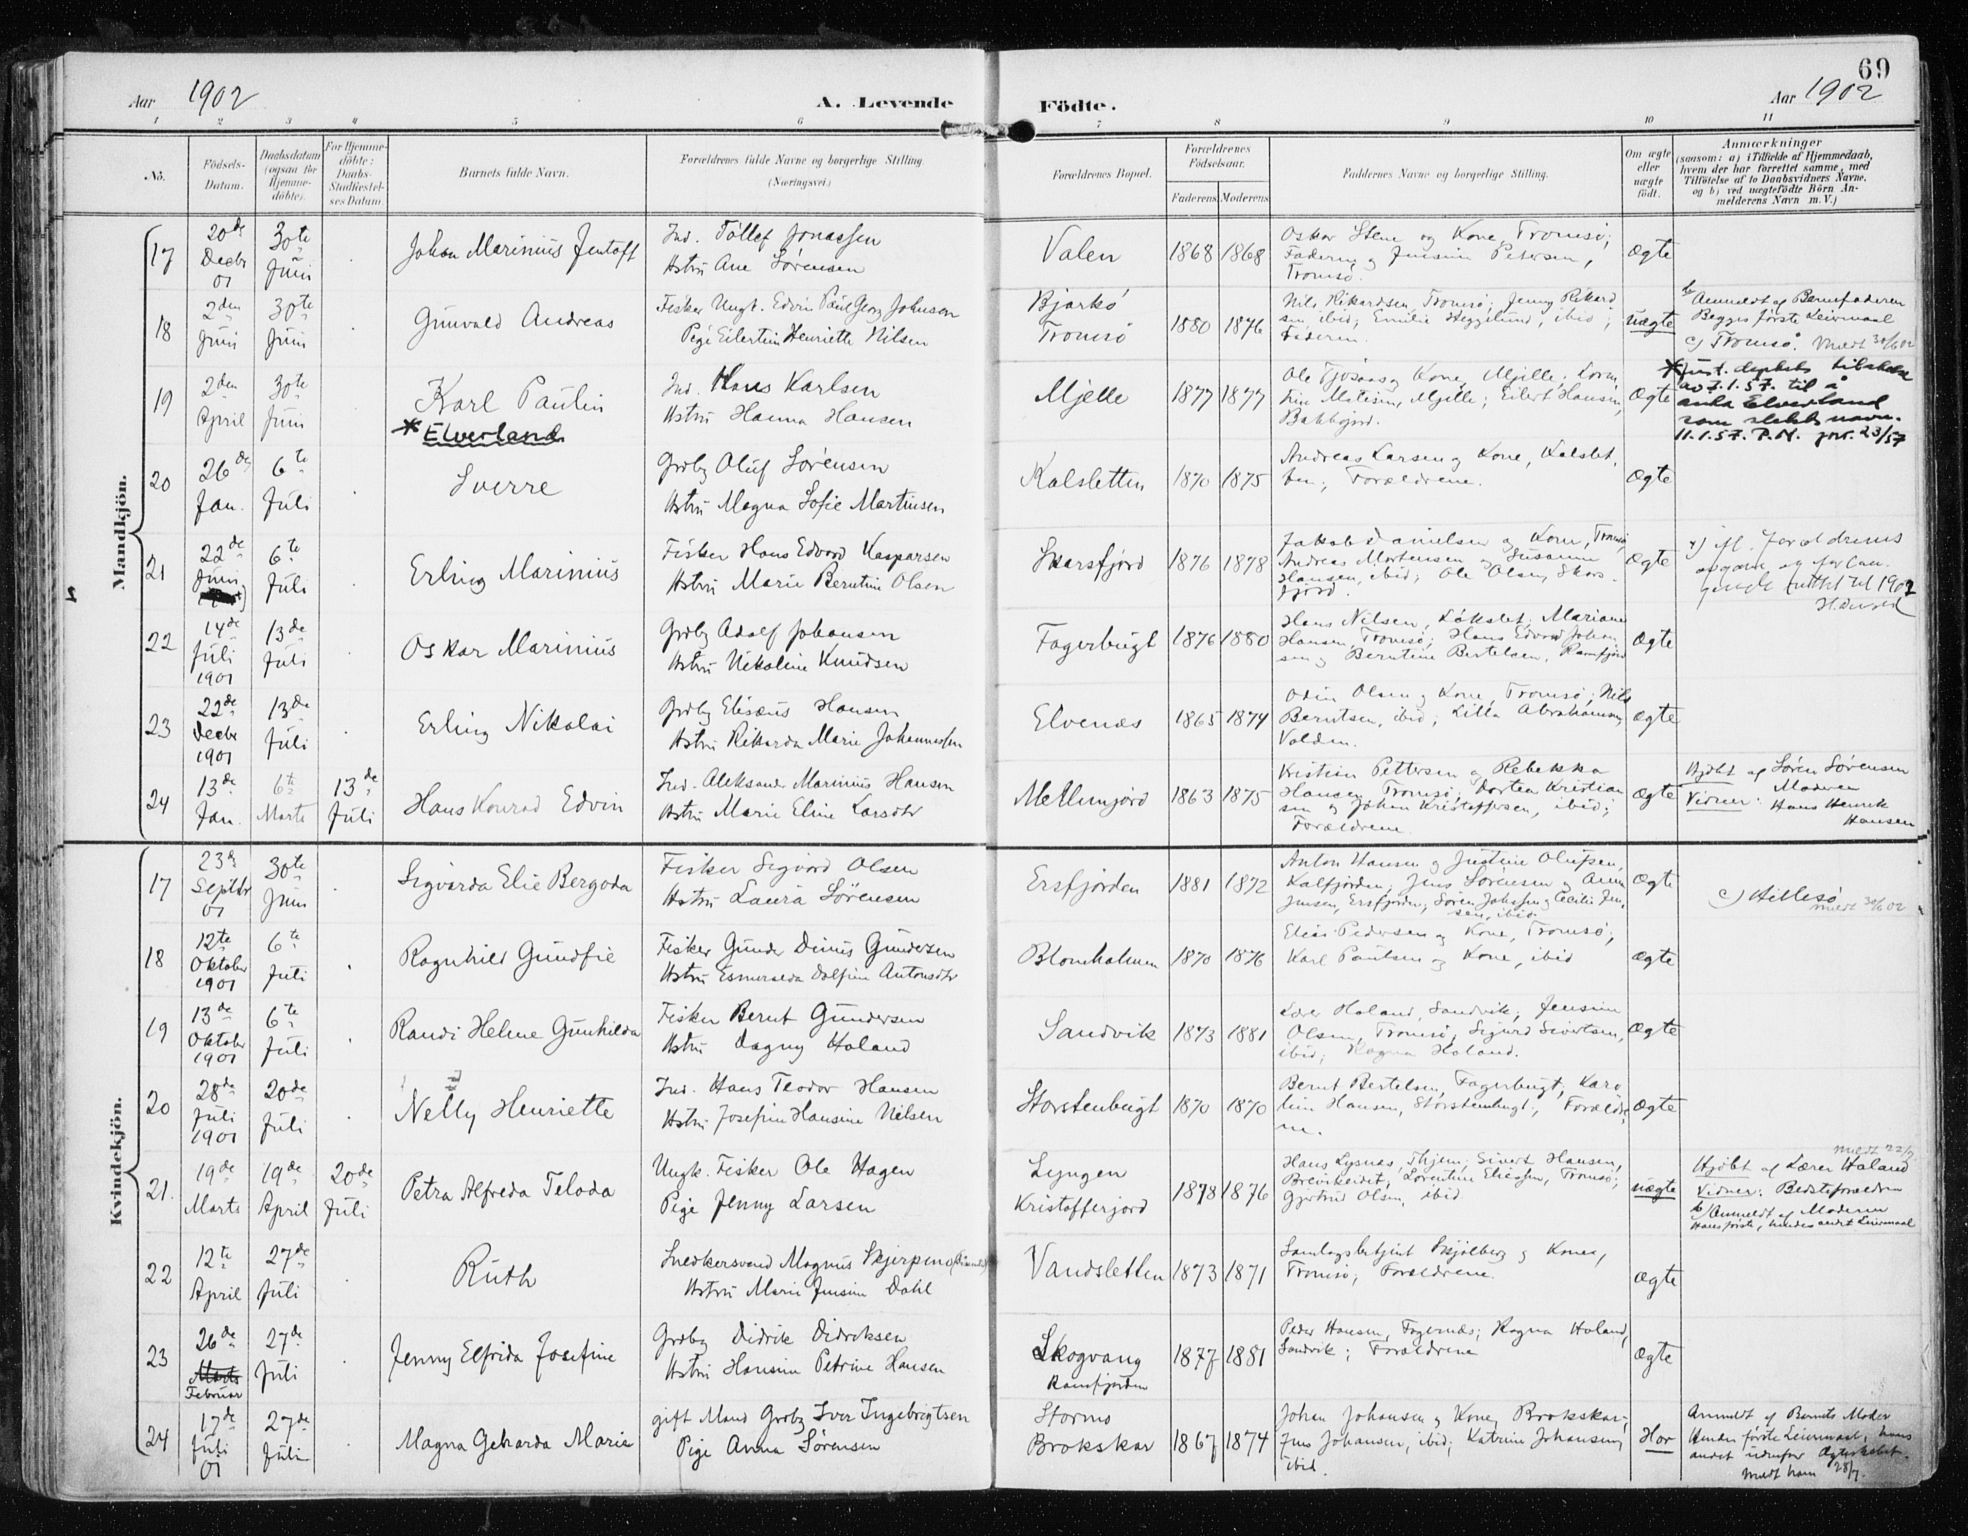 69
Aar 1902
A. Levende Födte.
Aar 1902
1 2 3 4 5 6 7 8 9 10 11
No. Födsels-Datum. Daabsdatum (ogsaa for Hjemme-döbte). For Hjemme-döbte: Daabs-Stadfæstel-ses Datum. Barnets fulde Navn. Forældrenes fulde Navne og borgerlige Stilling. (Næringsvei.) Forældrenes Bopæl. Forældrenes Födselsaar. Faderens Moderens Faddernes Navne og borgerlige Stilling. Om ægte eller uægte födt.
Anmærkninger
(saasom: a) i Tilfælde af Hjemmedaab,
hvem der har forrettet samme, med
Tilföielse af to Daabsvidners Navne,
og b) ved uægtefödte Börn An-
melderens Navn m. V.)
Mandkjön.
17 20de Decbr 01 30te Juni Johan Marinius Jentoft
Ind. Tollef Jonassen
Hstru Ane Sørensen
Valen 1868 1868
Oskar Stene og Kone, Tromsø;
Faderen og Jensine Petersen,
Tromsø.
Ægte
18 2den Juni 30te Juni Gunvald Andreas
Fisker Ungk. Edvin Paul Georg Johnson
Pige Eilertine Henriette Nilsen
Bjarkö
Tromsö
1880 1876
Nils Rikardsen, Tromsø; Jenny Rikard
sen ibid; Emilie Heggelund, ibid;
Faderen.
uægte
b) Anmeldt af Barnefaderen
Begges første Leiermaal
c) Tromsø. Meldt 30/6 02
19 2den April 30te Juni Karl Paulin
* Elverland
Ind. Hans Karlsen
Hstru Hanna Hansen
Mjelle 1877 1877
Ole Tjosaas og Kone, Mjelle;
Mjelle; Eilert Hansen,
Bakkejord.
Ægte
* Just. dep.
av 7.1.57. til å
anta Elverland
som slektsnavn.
11.1.57. P.M. jnr. 23/57
20 26de Jan. 6te Juli Sverre
Grdbr Oluf Sørensen
Hstru Magna Sofie Martinsen
Kalsletten 1870 1875
Andreas Larsen og Kone, Kalslet-
ten; Forældrene.
Ægte
21 22de Juni 6te Juli Erling Marinius
Fisker Hans Edvard Kasparsen
Hstru Marie Berntine Olsen
Skarsfjord 1876 1878
Jakob Danielsen og Kone, Tromsø,
Andreas Mortensen og Susanne
Hansen, ibid; Ole Olsen, Skars-
fjord.
Ægte
Forældrenes
opgave og forlan-
gende rettet til 1902
22 14de Juli 1901 13de Juli Oskar Marinius
Grdbr Adolf Johansen
Hstru Nikoline Knudsen
Fagerbugt 1876 1880
Hans Nilsen, Løkslet; Mariane
Hansen, Tromsø; Hans Edvard Johan
sen og Berntine Bertelsen, Ramfjord
Ægte
23 22de Decbr 1901 13de Juli Erling Nikolai
Grdbr Elisæus Hansen
Hstru Rikarda Marie Johannessen
Elvenæs 1865 1874
Odin Olsen og Kone, Tromsø; Nils
Berntsen, ibid; Lilla Abrahamsen,
Volden.
Ægte
24 13de Jan. 6te Marts 13de Juli Hans Konrad Edvin
Ind. Aleksander Marinius Hansen
Hstru Marie Eline Larsdtr
Mellemjord 1863 1875
Kristian Pettersen og Rebekka
Hansen, Tromsø; Dortea Kristian
sen og Johan Kristoffersen, ibid;
Forældrene.
Ægte
Hjdbt af Søren Sørensen
Moderen
Vidner: Hans Henrik
Hansen
Kvindekjön.
17 23de Septbr 01 30te Juni Sigvarda Elie Bergoda
Fisker Sigvard Olsen
Hstru Laura Sørensen
Ersfjorden 1881 1872
Anton Hansen og Justine Olufsen,
Kalfjorden; Jens Sørensen og Anne
Jensen, Ersfjorden; Søren Johnsen og Cecilie Jen-
sen, ibid
Ægte
c) Hillesø
meldt 30/6 02
18 12te Oktober 1901 6te Juli Ragnhild Gundfie
Fisker Gunder Dinus Gundersen
Hstru Esmeralda Dolfine Antonsdtr
Blomholmen 1870 1876
Elias Pedersen og Kone, Tromsø;
Karl Paulsen og Kone, ibid
Ægte
19 13de Oktober 1901 6te Juli Randi Helene Gunhilda
Fisker Bernt Gundersen
Hstru Dagny Haland
Sandvik 1873 1881
Lærer Haland, Sandvik, Jensine
Olsen, Tromsø, Sigurd Sivertsen,
ibid; Ragna Haland.
Ægte
20 28de Juli 1901 20de Juli Nelly Henriette
Ind. Hans Teodor Hansen
Hstru Josefine Hansine Nilsen
Storstenbugt 1870 1870
Bernt Bertelsen, Fagerbugt, Karo
line Hansen, Storstenbugt; Forældre
ne.
Ægte
21. 19de Marts 19de April 20de Juli Petra Alfreda Teloda
Ungk. Fisker Ole Hagen
Pige Jenny Larsen
Lyngen
Kristofferjord
1878 1876
Hans Lysnæs, Thjem; Sivert Hansen,
Breivikeidet, Lorentine Eliassen, Tromsø;
Gjertrud Olsen, ibid
uægte
meldt 22/7
Hjdbt af Lærer Haland
Vidner: Bedsteforældrene
b) Anmeldt af Moderen
Hans første, hendes andet Leiermaal
22 12te April 27de Juli Ruth
Snedkersvend Magnus Skjerpmo
Hstru Marie Jensine Dahl
Vandsletten 1873 1871
Samlagsbetjent Skjølberg og Kone,
Tromsø; Forældrene.
Ægte
23 26de Marts Februar 27de Juli Jenny Elfrida Josefine
Grdbr Didrik Didriksen
Hstru Hansine Petrine Hansen
Skogvang
Ramfjorden
1877 1881
Peder Hansen, Fagernæs; Ragna Haland,
Sandvik; Forældrene
Ægte
24 17de Juli 01 27de Juli Magna Gerharda Marie
gift Mand Grdbr Iver Ingebrigtsen
Pige Anna Sørensen
Stormo
Brokskar
1867 1874
Johan Johansen og Kone, Brokskar;
Jens Johansen, ibid; Katrine Johansen,
ibid.
Hor
Anmeldt af Barnets Moder
Hendes første Leiermaal, hans
andet udenfor Ægteskabet.
meldt ham 28/7.